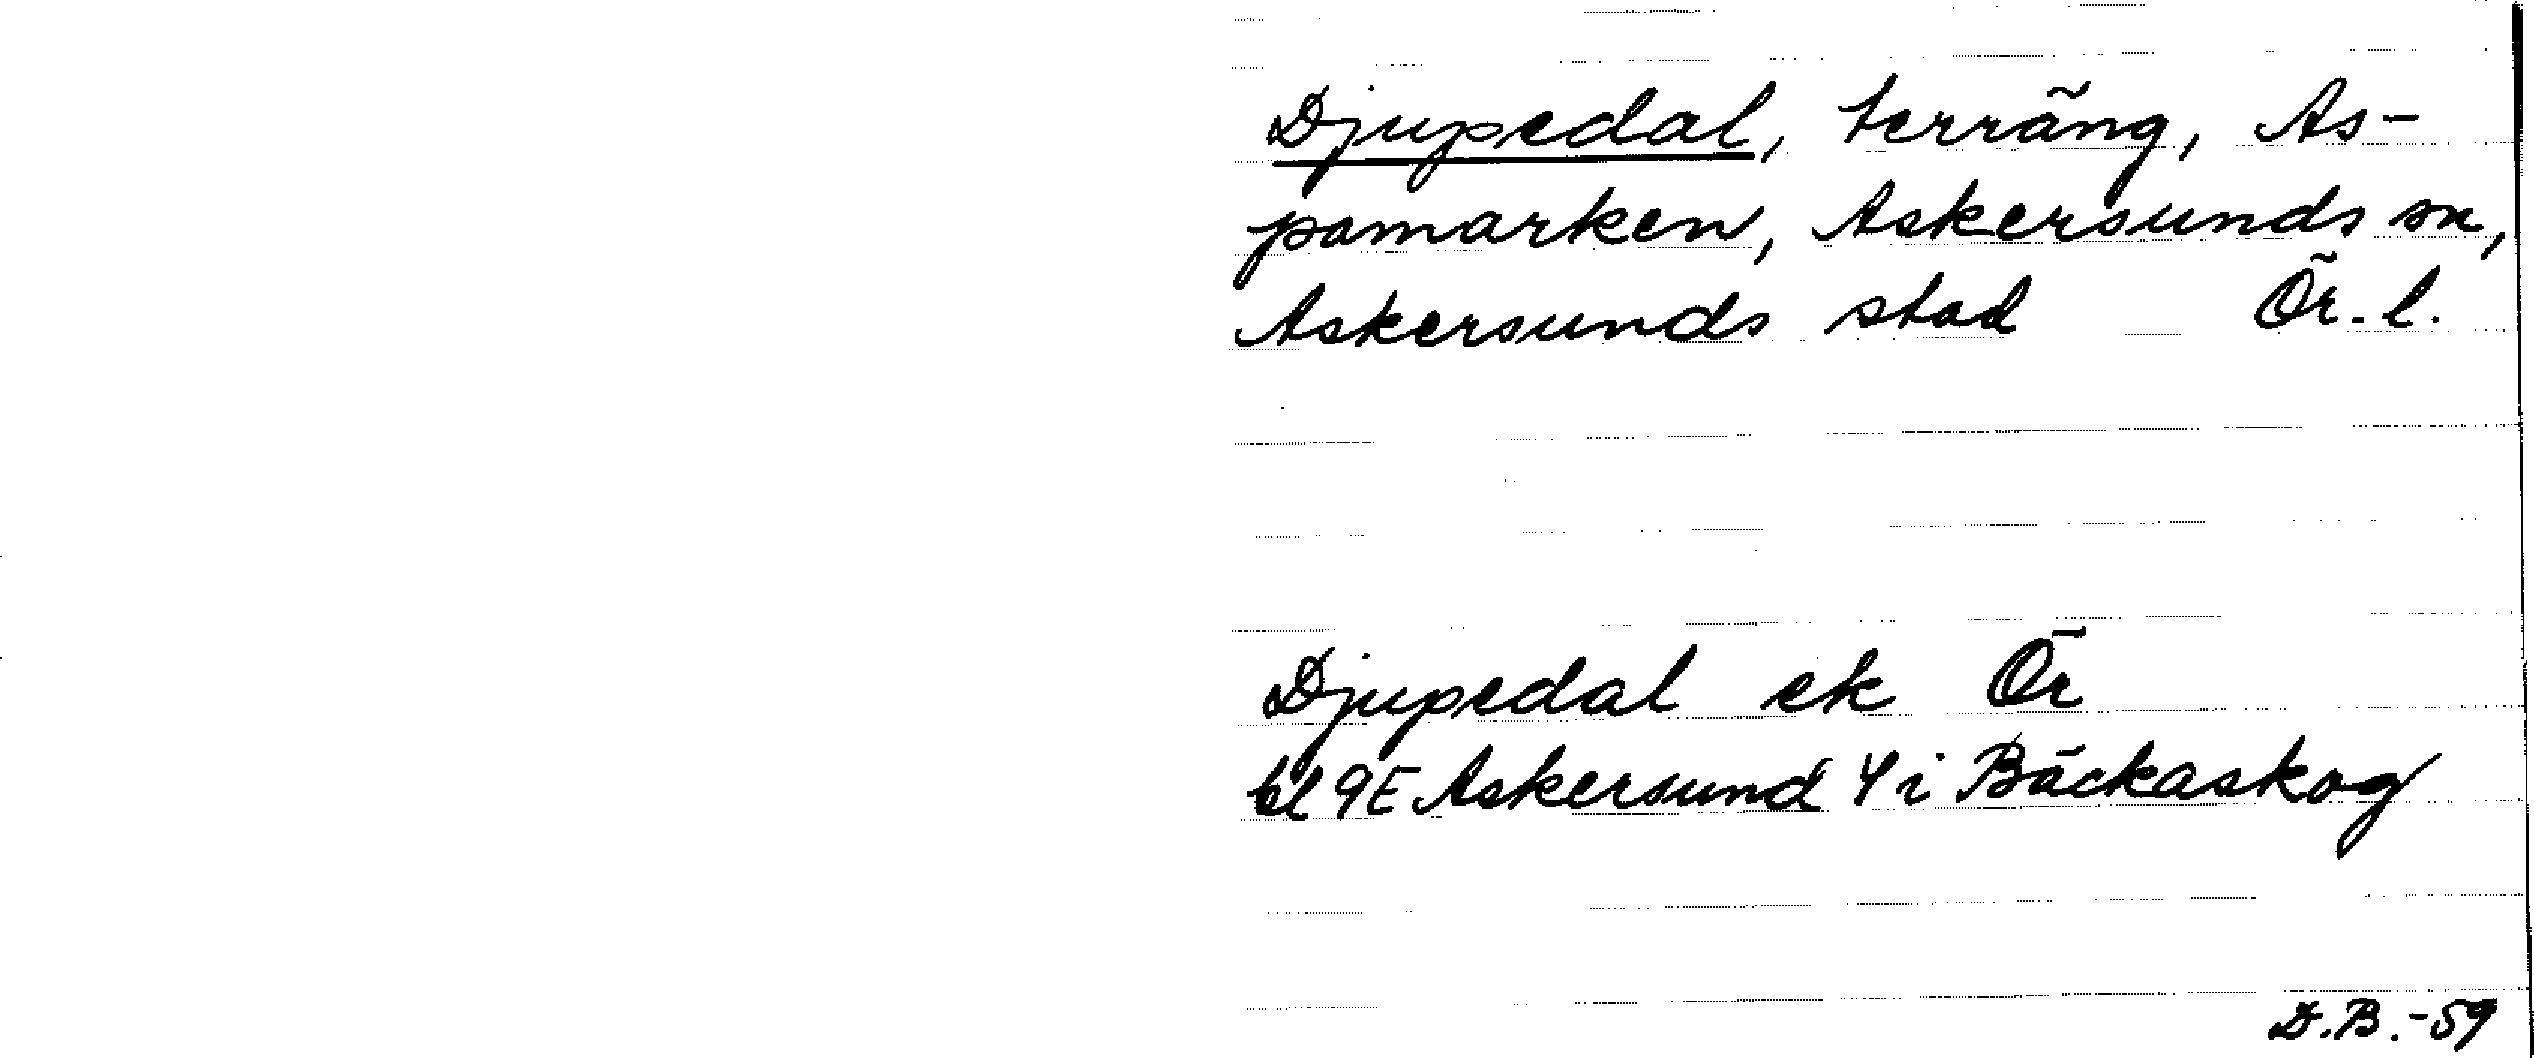 Djupedal, terräng, As-
pamarken, Askersunds sn,
Askersunds stad Ör. l.
Djupedal ek Ör
bl 9E Askersund 4 i Bäckaskog
D.B.-59